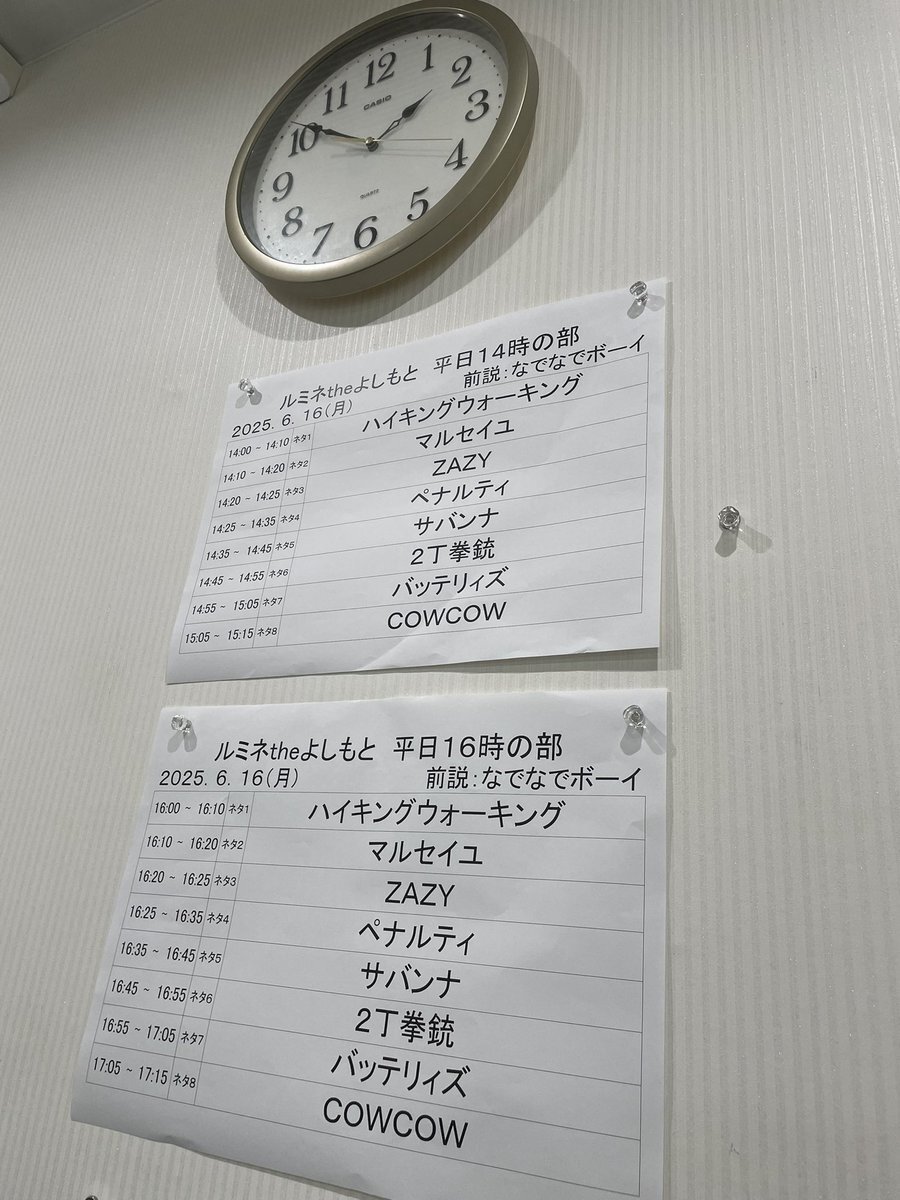 12
1
2
3
4
5
6
7
8
9
10
11
CASIO
QUARTZ
ルミネtheよしもと 平日14時の部
2025. 6. 16(月) 前説:なでなでボーイ
14:00 ~ 14:10 ネタ1 ハイキングウォーキング
14:10 ~ 14:20 ネタ2 マルセイユ
14:20 ~ 14:25 ネタ3 ZAZY
14:25 ~ 14:35 ネタ4 ペナルティ
14:35 ~ 14:45 ネタ5 サバンナ
14:45 ~ 14:55 ネタ6 2丁拳銃
14:55 ~ 15:05 ネタ7 バッテリィズ
15:05 ~ 15:15 ネタ8 COWCOW
ルミネtheよしもと 平日16時の部
2025. 6. 16(月) 前説:なでなでボーイ
16:00 ~ 16:10 ネタ1 ハイキングウォーキング
16:10 ~ 16:20 ネタ2 マルセイユ
16:20 ~ 16:25 ネタ3 ZAZY
16:25 ~ 16:35 ネタ4 ペナルティ
16:35 ~ 16:45 ネタ5 サバンナ
16:45 ~ 16:55 ネタ6 2丁拳銃
16:55 ~ 17:05 ネタ7 バッテリィズ
17:05 ~ 17:15 ネタ8 COWCOW